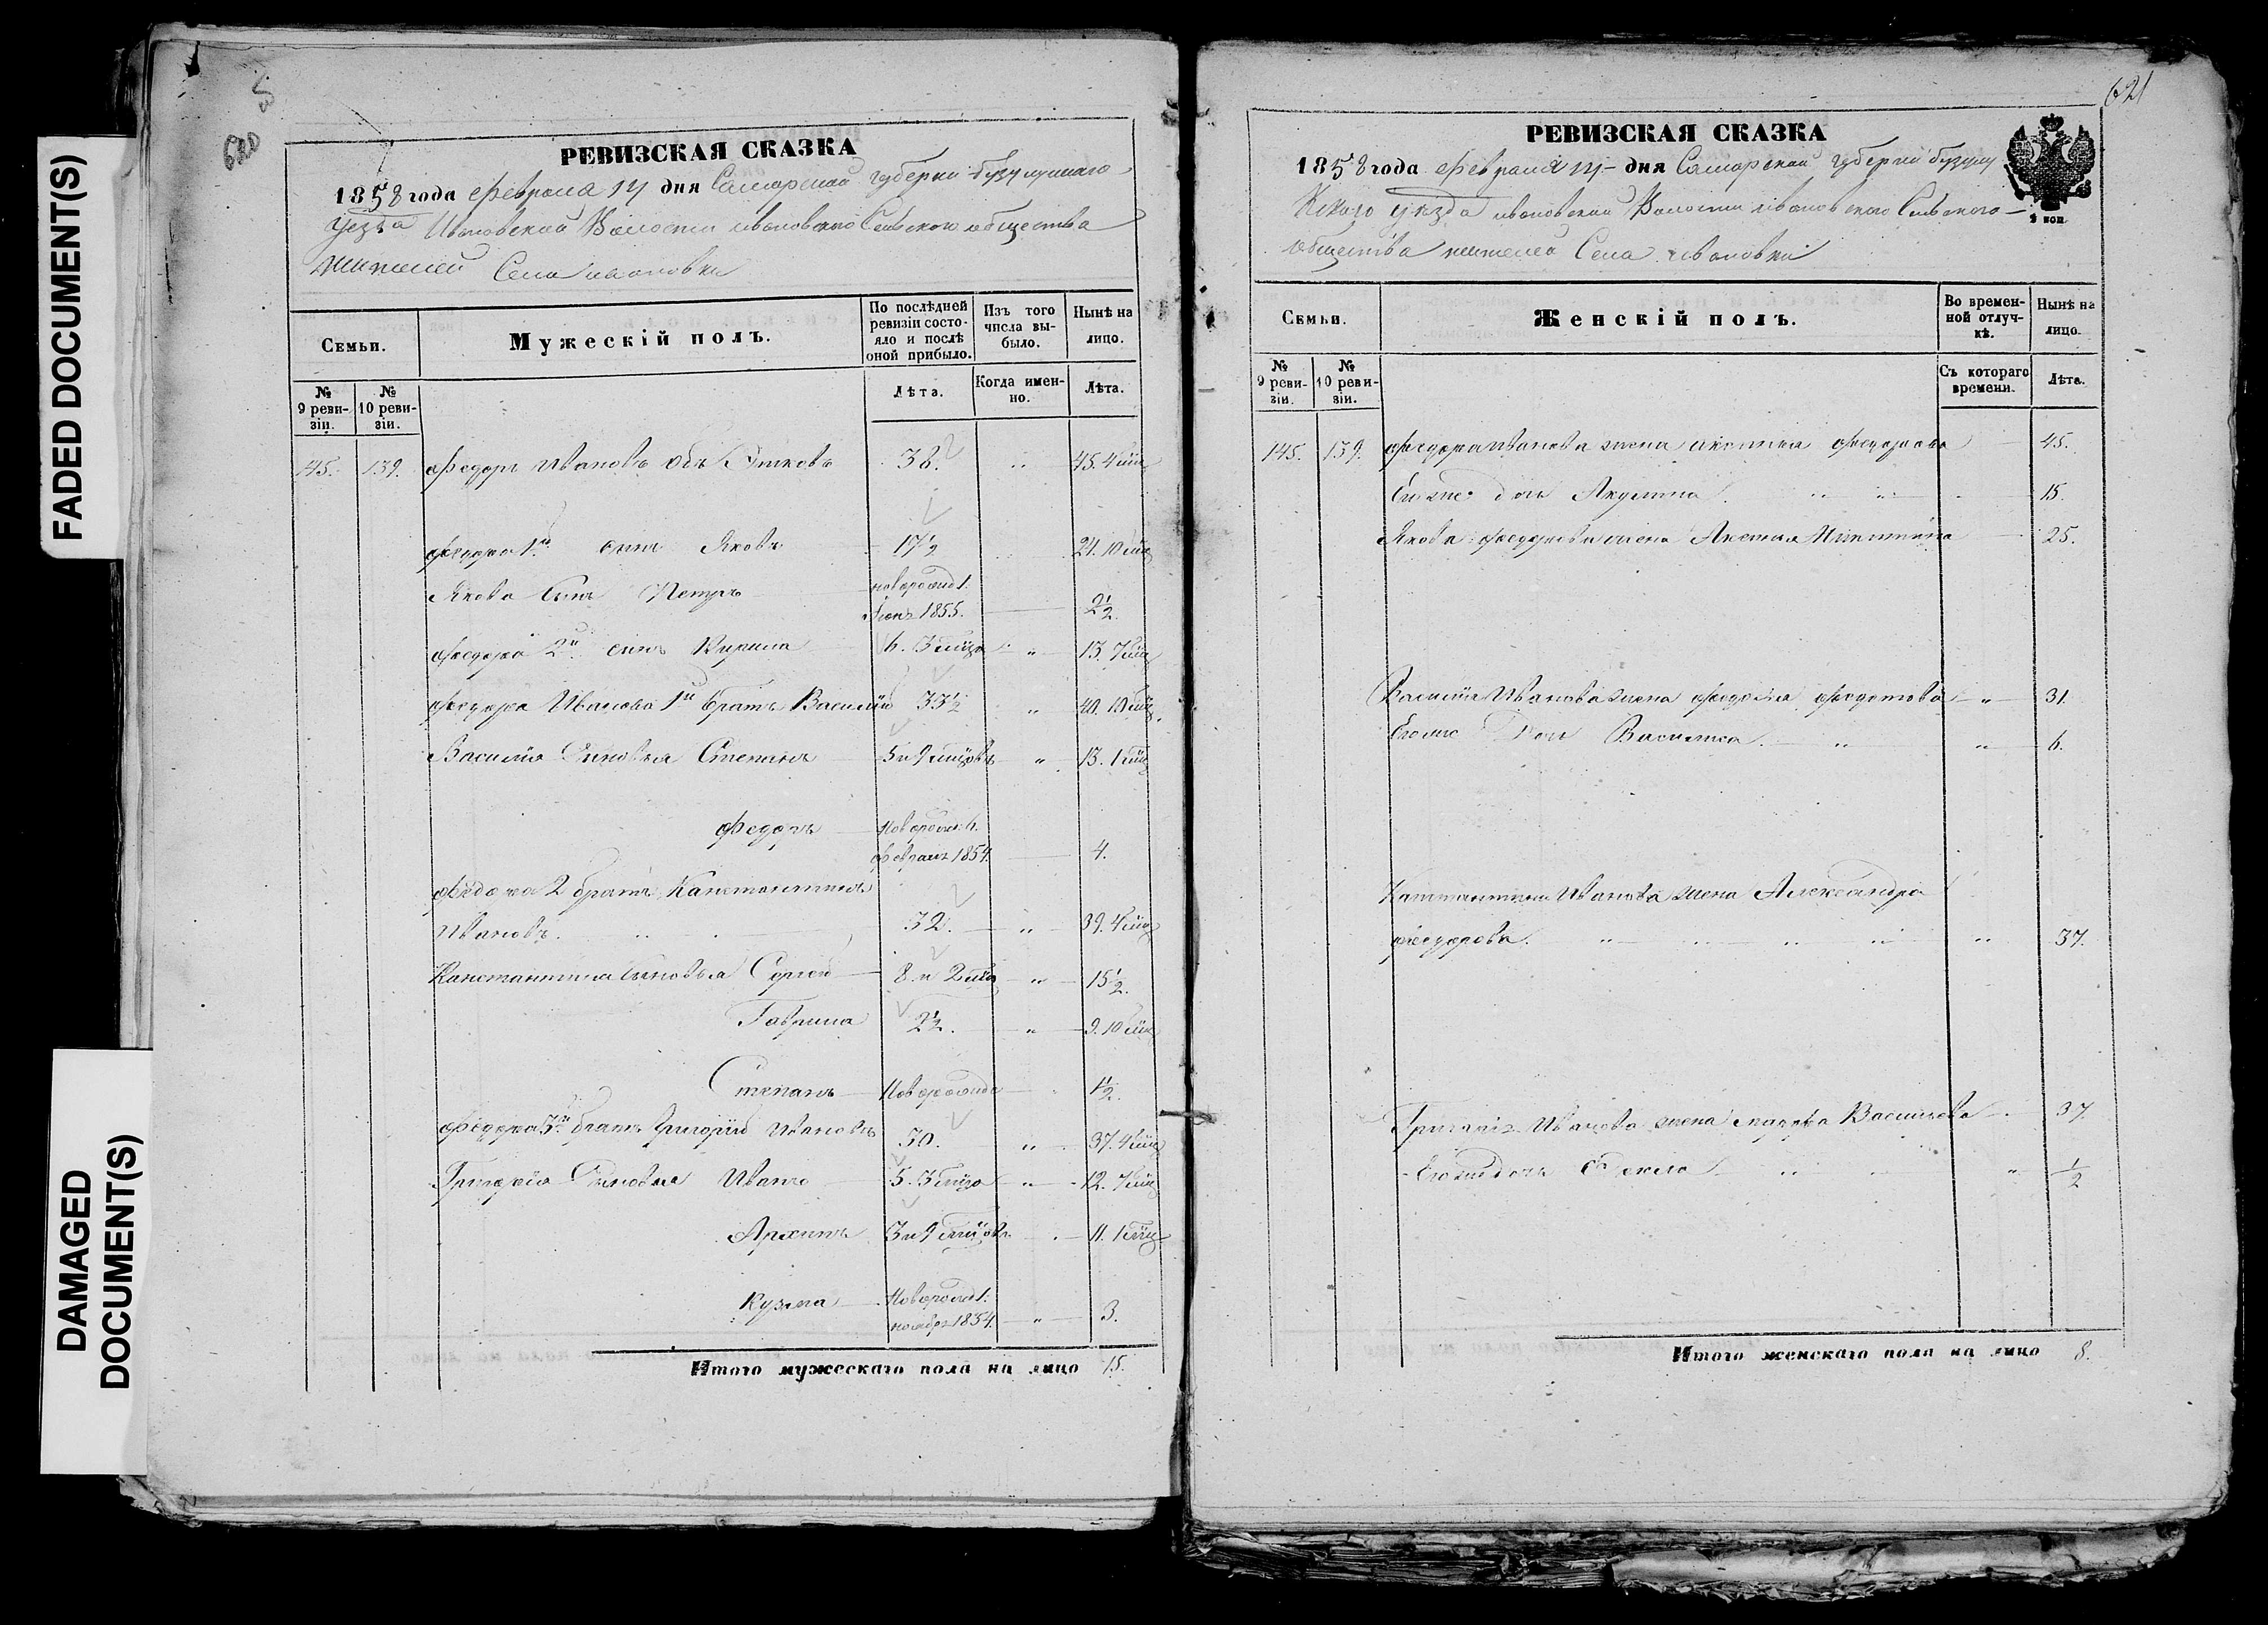 FADED DOCUMENT(S)
DAMAGED
DOCUMENT(S)
620
РЕВИЗСКАЯ СКАЗКА
1858 года Февраля 14 дня Самарской губернии бузулукскаго
уезда Ивановской Волости ивановскаго Сельскаго общества
жителей Села ивановки
Семьи.
Мужескій полъ.
По послѣдней ревизіи состояло и послѣ оной прибыло.
Изъ того числа выбыло.
Нынѣ на лицо.
№ 9 ревизіи.
№ 10 ревизіи.
Лѣта.
Когда именно.
Лѣта.
145. 139. Федоръ Ивановъ 38. " 45. 4 мѣц
Федора 1й сынъ Яковъ 17 1/2 24. 10 мѣц
Якова сынъ Петръ новорожд:
1855. 2 1/2
Федора 2й сынъ Кирила 6. 3 мѣца " 13. 7 мѣц
Федора Иванова 1й братъ Василій 33 1/2 " 40. 10 мѣц
Василія Сыновья Степанъ 5 и 9 мѣцовъ " 13. 1 мѣц
Федоръ Новорожд:
февраль 1854. 4.
Федора 2 братъ Канстантинъ
Ивановъ. 32. " 39. 4 мѣц
Канстантина сыновья Сергей 8. и 2 мѣц " 15 1/2.
Гаврила 2 1/2. " 9. 10 мѣц
Степанъ Новорожд 1 1/2.
Федора 3й братъ Григорій Ивановъ 30. " 37. 4 мѣц
Григорія Сыновья Иванъ 5. 3 мѣца " 12. 7 мѣц
Архипъ 3 и 9 мѣцовъ 11. 1 мѣц
Кузма Новорожд:
ноябрь 1854. " 3.
Итого мужескаго пола на лицо 15.
621
РЕВИЗСКАЯ СКАЗКА
1858 года Февраля 14 дня Самарской губернии бузулу
кскаго уезда ивановской Волости ивановскаго Сельскаго
общества жителей Села ивановки
2 коп
Семьи.
Женскій полъ.
Во временной отлучкѣ.
Нынѣ на лицо.
№ 9 ревизіи.
№ 10 ревизіи.
Съ котораго времени.
Лѣта.
145. 139. Федора Иванова жена Федорова 45.
Ихже дочь Акулина 15.
Якова Федорова жена Никитина 25.
Василія Иванова жена Федосья Федотова " 31.
Егоже Дочь Василиса. " " 6.
Канстантина Иванова жена Александра
Федорова. " " 37.
Григорія Иванова жена Марфа Васильева 37.
Егоже дочь Фекла " 1/2
Итого женскаго пола на лицо 8.